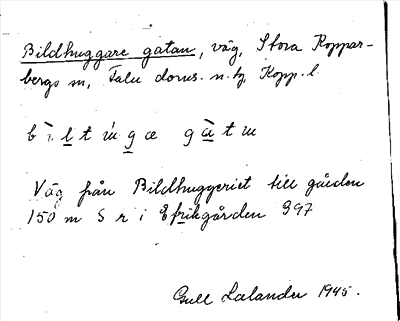 Bildhuggare gatan, väg, Stora Koppar-
bergs sn, Falu doms. n. tg, Kopp. l.
b ì l t ú g æ g à t ɯ
Väg från Bildhuggeriet till gården
150 m S r i Efrikgården 997
Gull Lalander 1945.